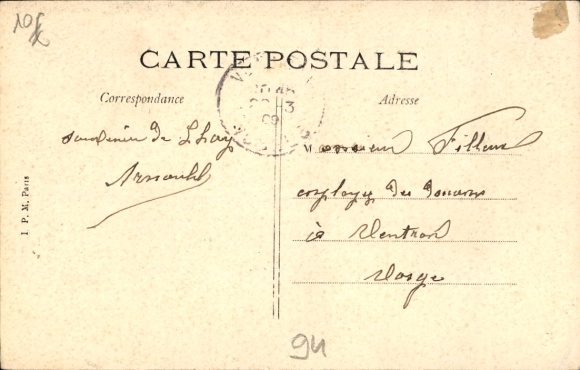 10f
CARTE POSTALE
Correspondance
Adresse
souvenir de L'Hay
Arnould
Monsieur Filleul
employé des Douanes
à Ventron
Vosge
I. P. M. Paris
94